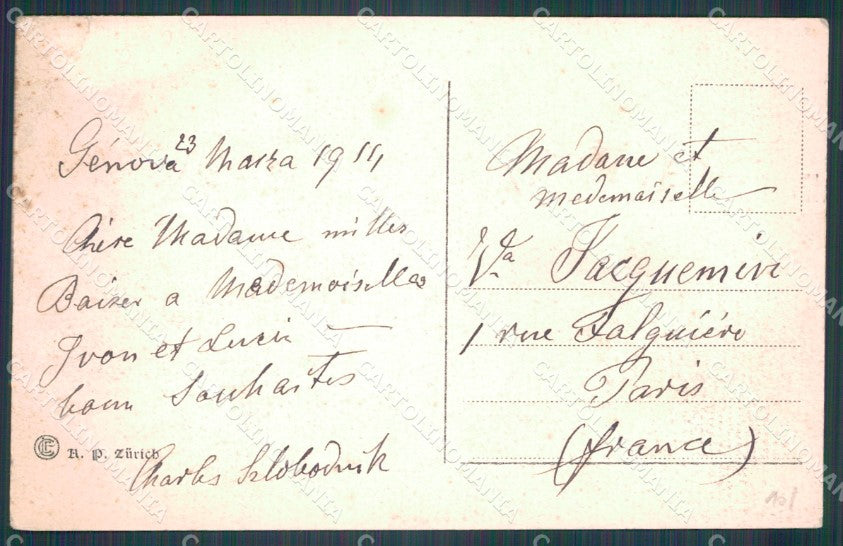 Génova 23 Marza 1911
Chère Madame milles
Baiser a Mademoiselles
Yvon et Lucie
bonn Souhaites
Charles Szlobodnik
R. P. Zürich
Madame et
medemaiselle
Va Jacquemire
1 rue Falguiére
Paris
(france)
CARTOLINOMANIA